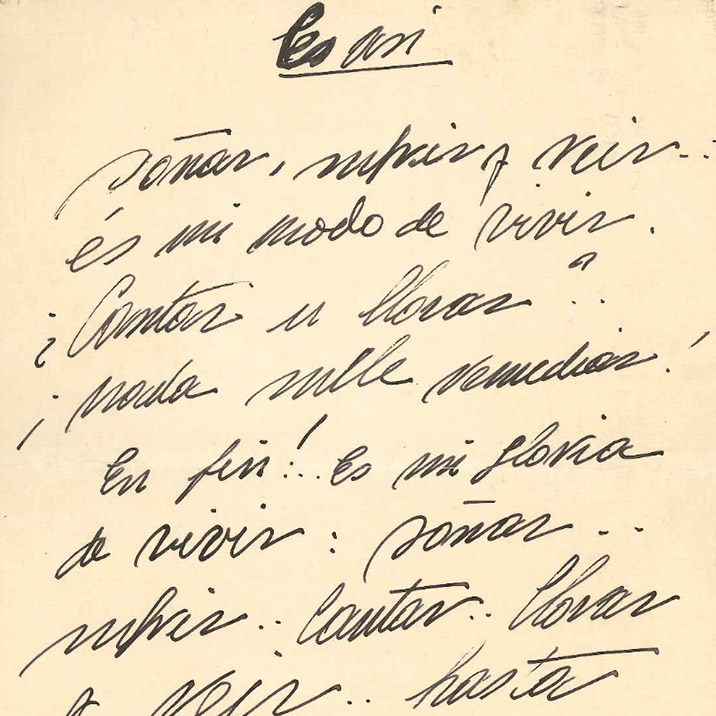 Es asi
soñar, sufrir y reir..
és mi modo de vivir.
¿Cantar u llorar?
¡nada remediar!
En fin!.. Es mi gloria
de vivir: soñar..
sufrir.. Cantar.. llorar
y reir.. hasta